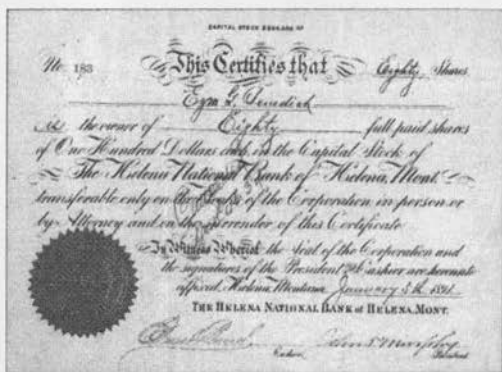 CAPITAL STOCK $500,000.00
No. 183 This Certifies that Eighty Shares
Ezra
is the owner of Eighty full paid shares
of One Hundred Dollars each, in the Capital Stock of
The Helena National Bank of Helena, Mont.
transferable only on the Books of the Corporation in person or
by Attorney and on the surrender of this Certificate
In Witness Whereof the Seal of the Corporation and
the signatures of the President and Cashier are hereunto
affixed. Helena, Montana January
THE HELENA NATIONAL BANK of HELENA, MONT.
Cashier President